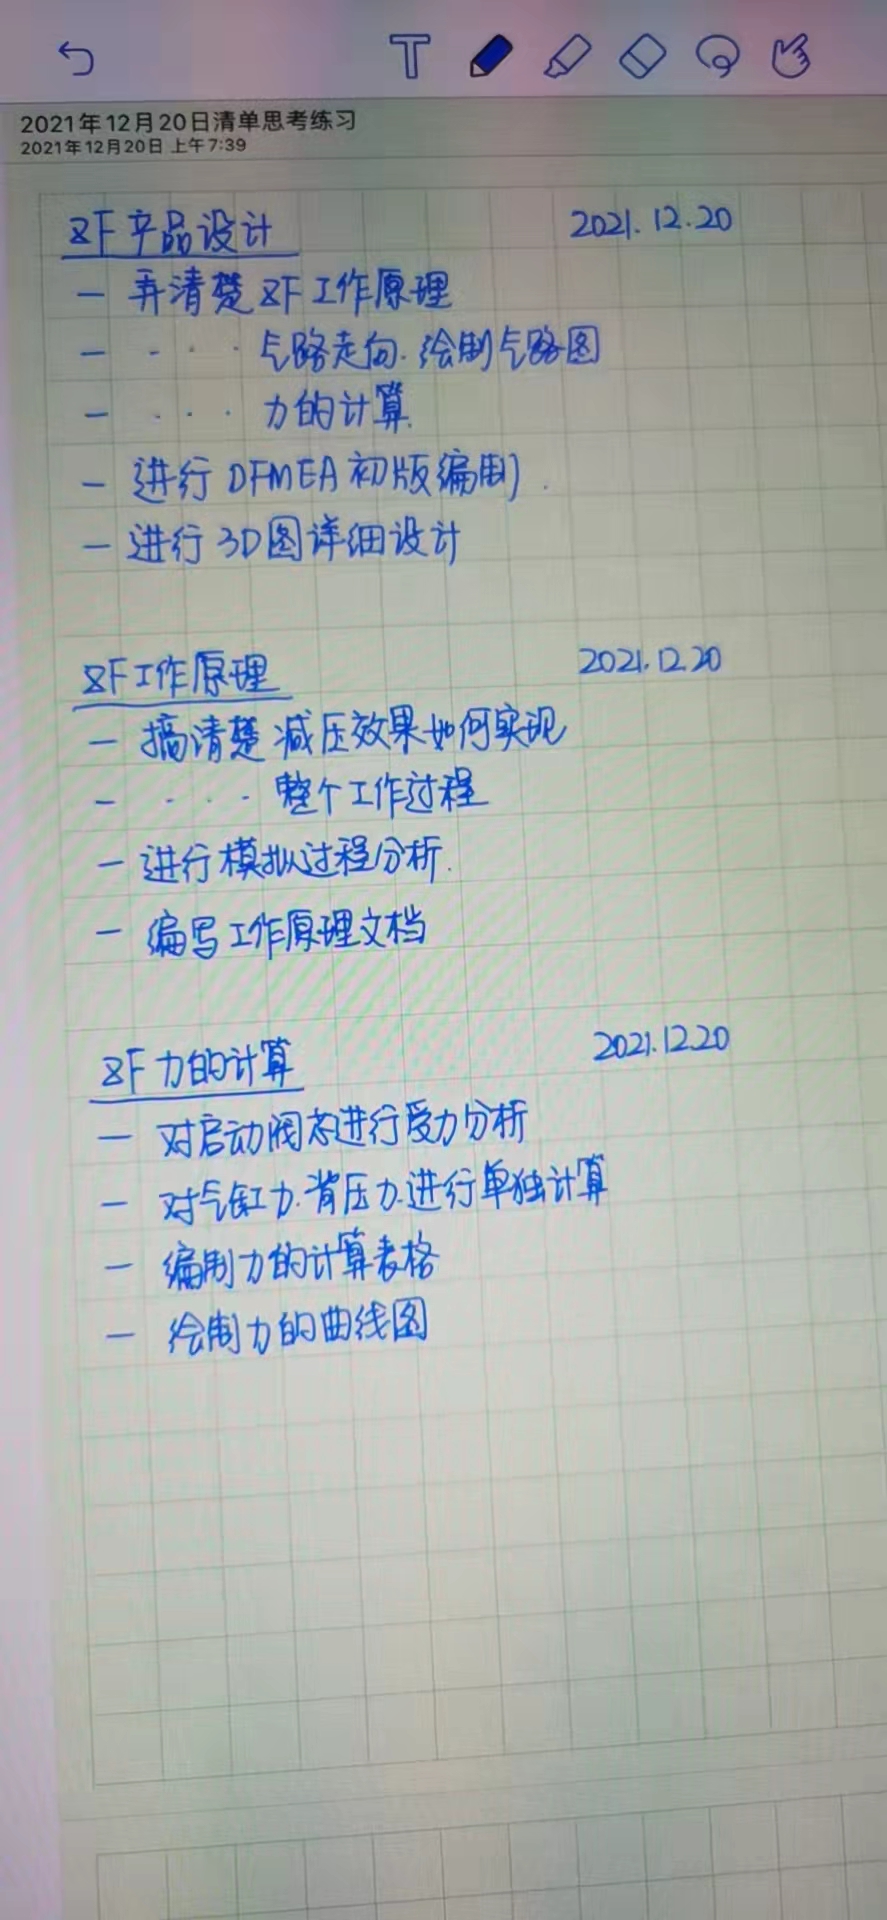 2021年12月20日清单思考练习
2021年12月20日 上午7:39
ZF产品设计 2021.12.20
— 弄清楚ZF工作原理
— · · · 气路走向.绘制气路图
— · · · 力的计算.
— 进行DFMEA初版编制.
— 进行3D图详细设计
ZF工作原理 2021.12.20
— 搞清楚减压效果如何实现
— · · · 整个工作过程
— 进行模拟过程分析.
— 编写工作原理文档
ZF力的计算 2021.12.20
— 对启动阀芯进行受力分析
— 对气缸力.背压力.进行单独计算
— 编制力的计算表格
— 绘制力的曲线图